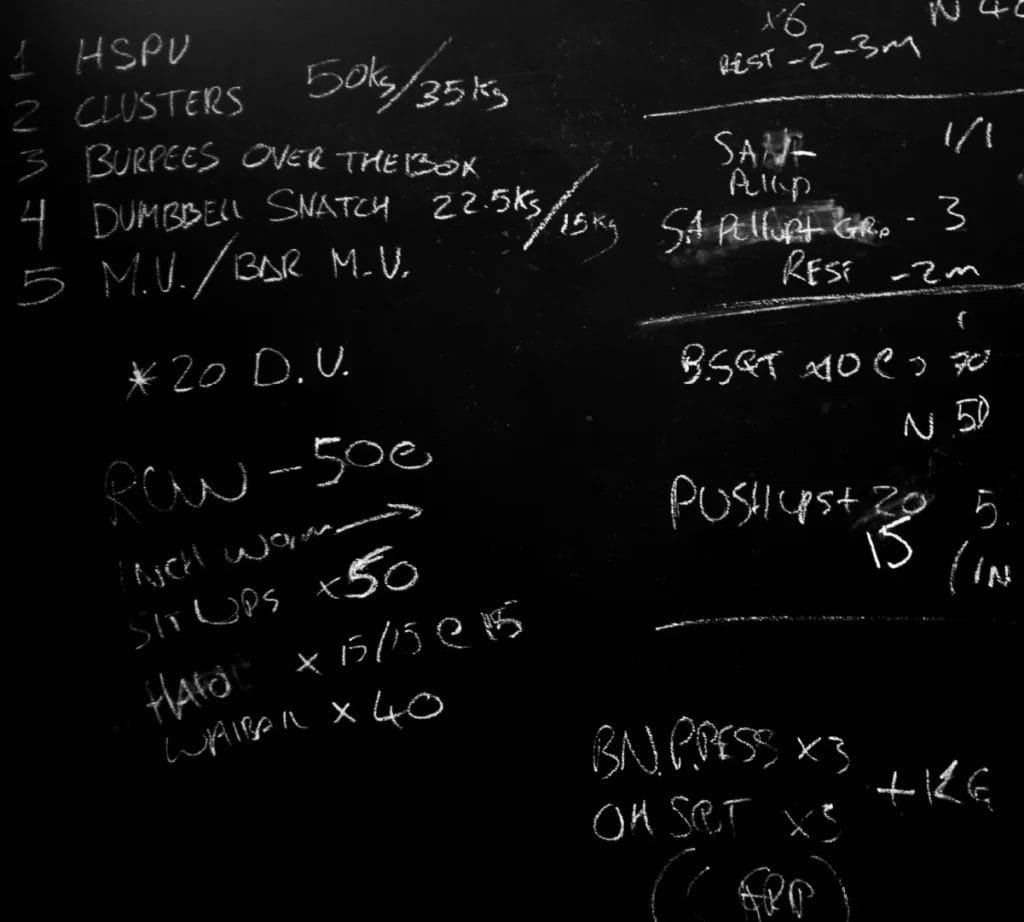 1 HSPU
2 CLUSTERS 50Kg/35Kg
3 BURPEES OVER THE BOX
4 DUMBBELL SNATCH 22.5Kg/15Kg
5 M.U./BAR M.U.
*20 D.U.
ROW - 50c
INCH WORM →
SIT UPS x50
x 15/15 @ 15
WALLBALL x 40
x6
REST - 2 - 3m
1/1
PULLUP
SA PULLUP + GRIP - 3
REST - 2m
B.SQT x10 @
N 50
PUSHUPS + 20 5.
15 (IN
BN.P.PRESS x3
+KG
OH SQT x3